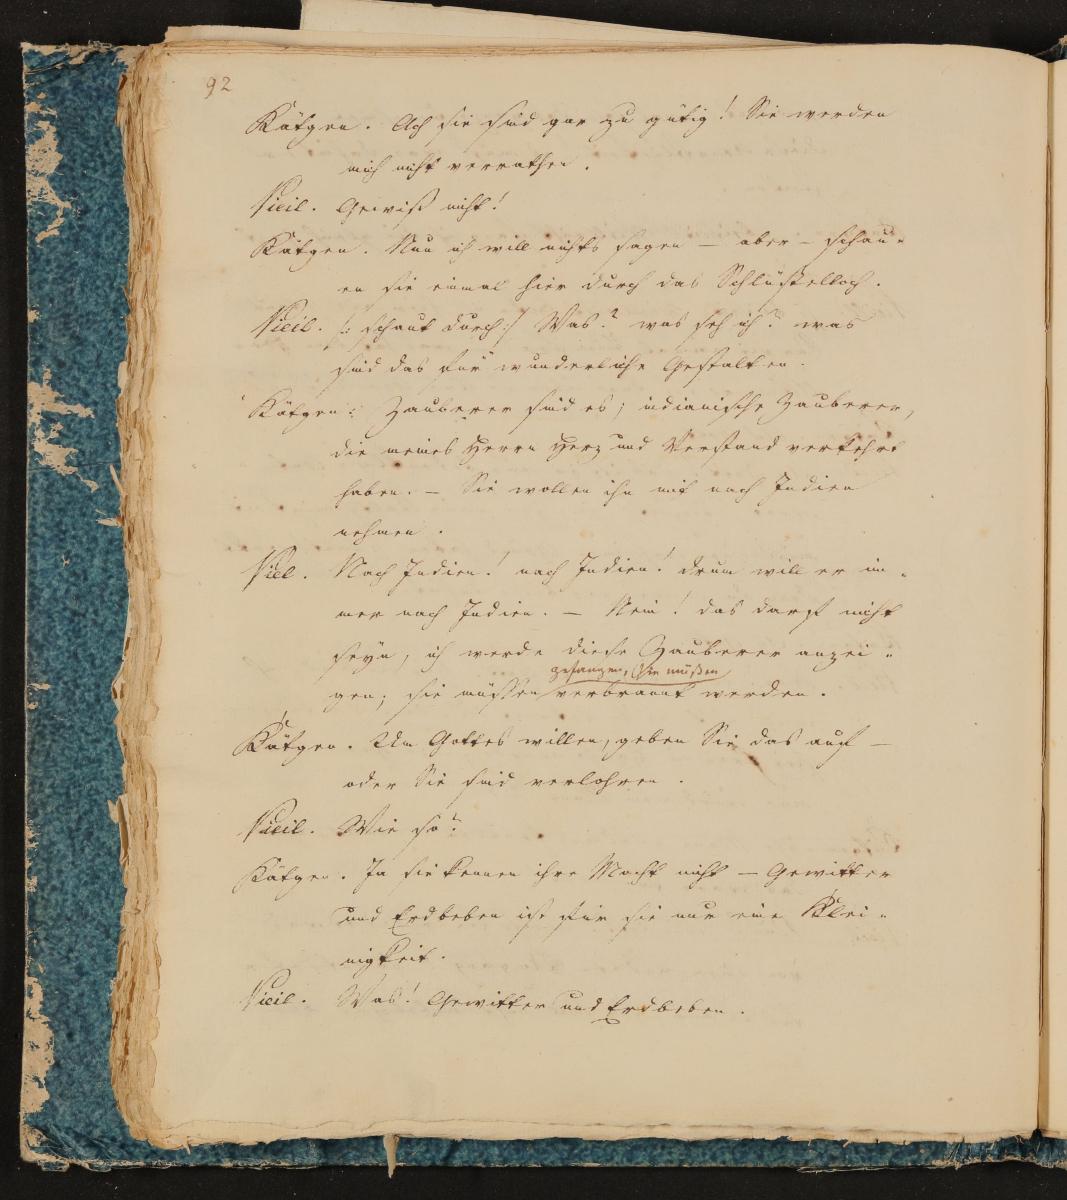 92
Kätgen. Ach sie sind gar zu gütig! Sie werden
mich nicht verrathen.
Vieil. Gewiß nicht!
Kätgen. Nun ich will nichts sagen — aber — schau=
en sie einmal hier durch das Schlüßelloch.
Vieil. /: schaut durch :/ Was? was seh ich? was
sind das für wunderliche Gestalten.
Kätgen: Zauberer sind es; indianische Zauberer,
die meines Herrn Herz und Verstand verkehrt
haben. — Sie wollen ihn mit nach Indien
nehmen.
Viel. Nach Indien! nach Indien! drum will er im=
mer nach Indien. — Nein! das darf nicht
seyn, ich werde diese Zauberer anzei=
gefangen, Sie müßen
gen; sie müssen verbrannt werden.
Kätgen. Um Gottes willen, geben Sie das auf —
oder Sie sind verlohren.
Vieil. Wie so?
Kätgen. Ja sie kennen ihre Macht nicht — Gewitter
und Erdbeben ist für sie nur eine Klei=
nigkeit.
Vieil. Was! Gewitter und Erdbeben.